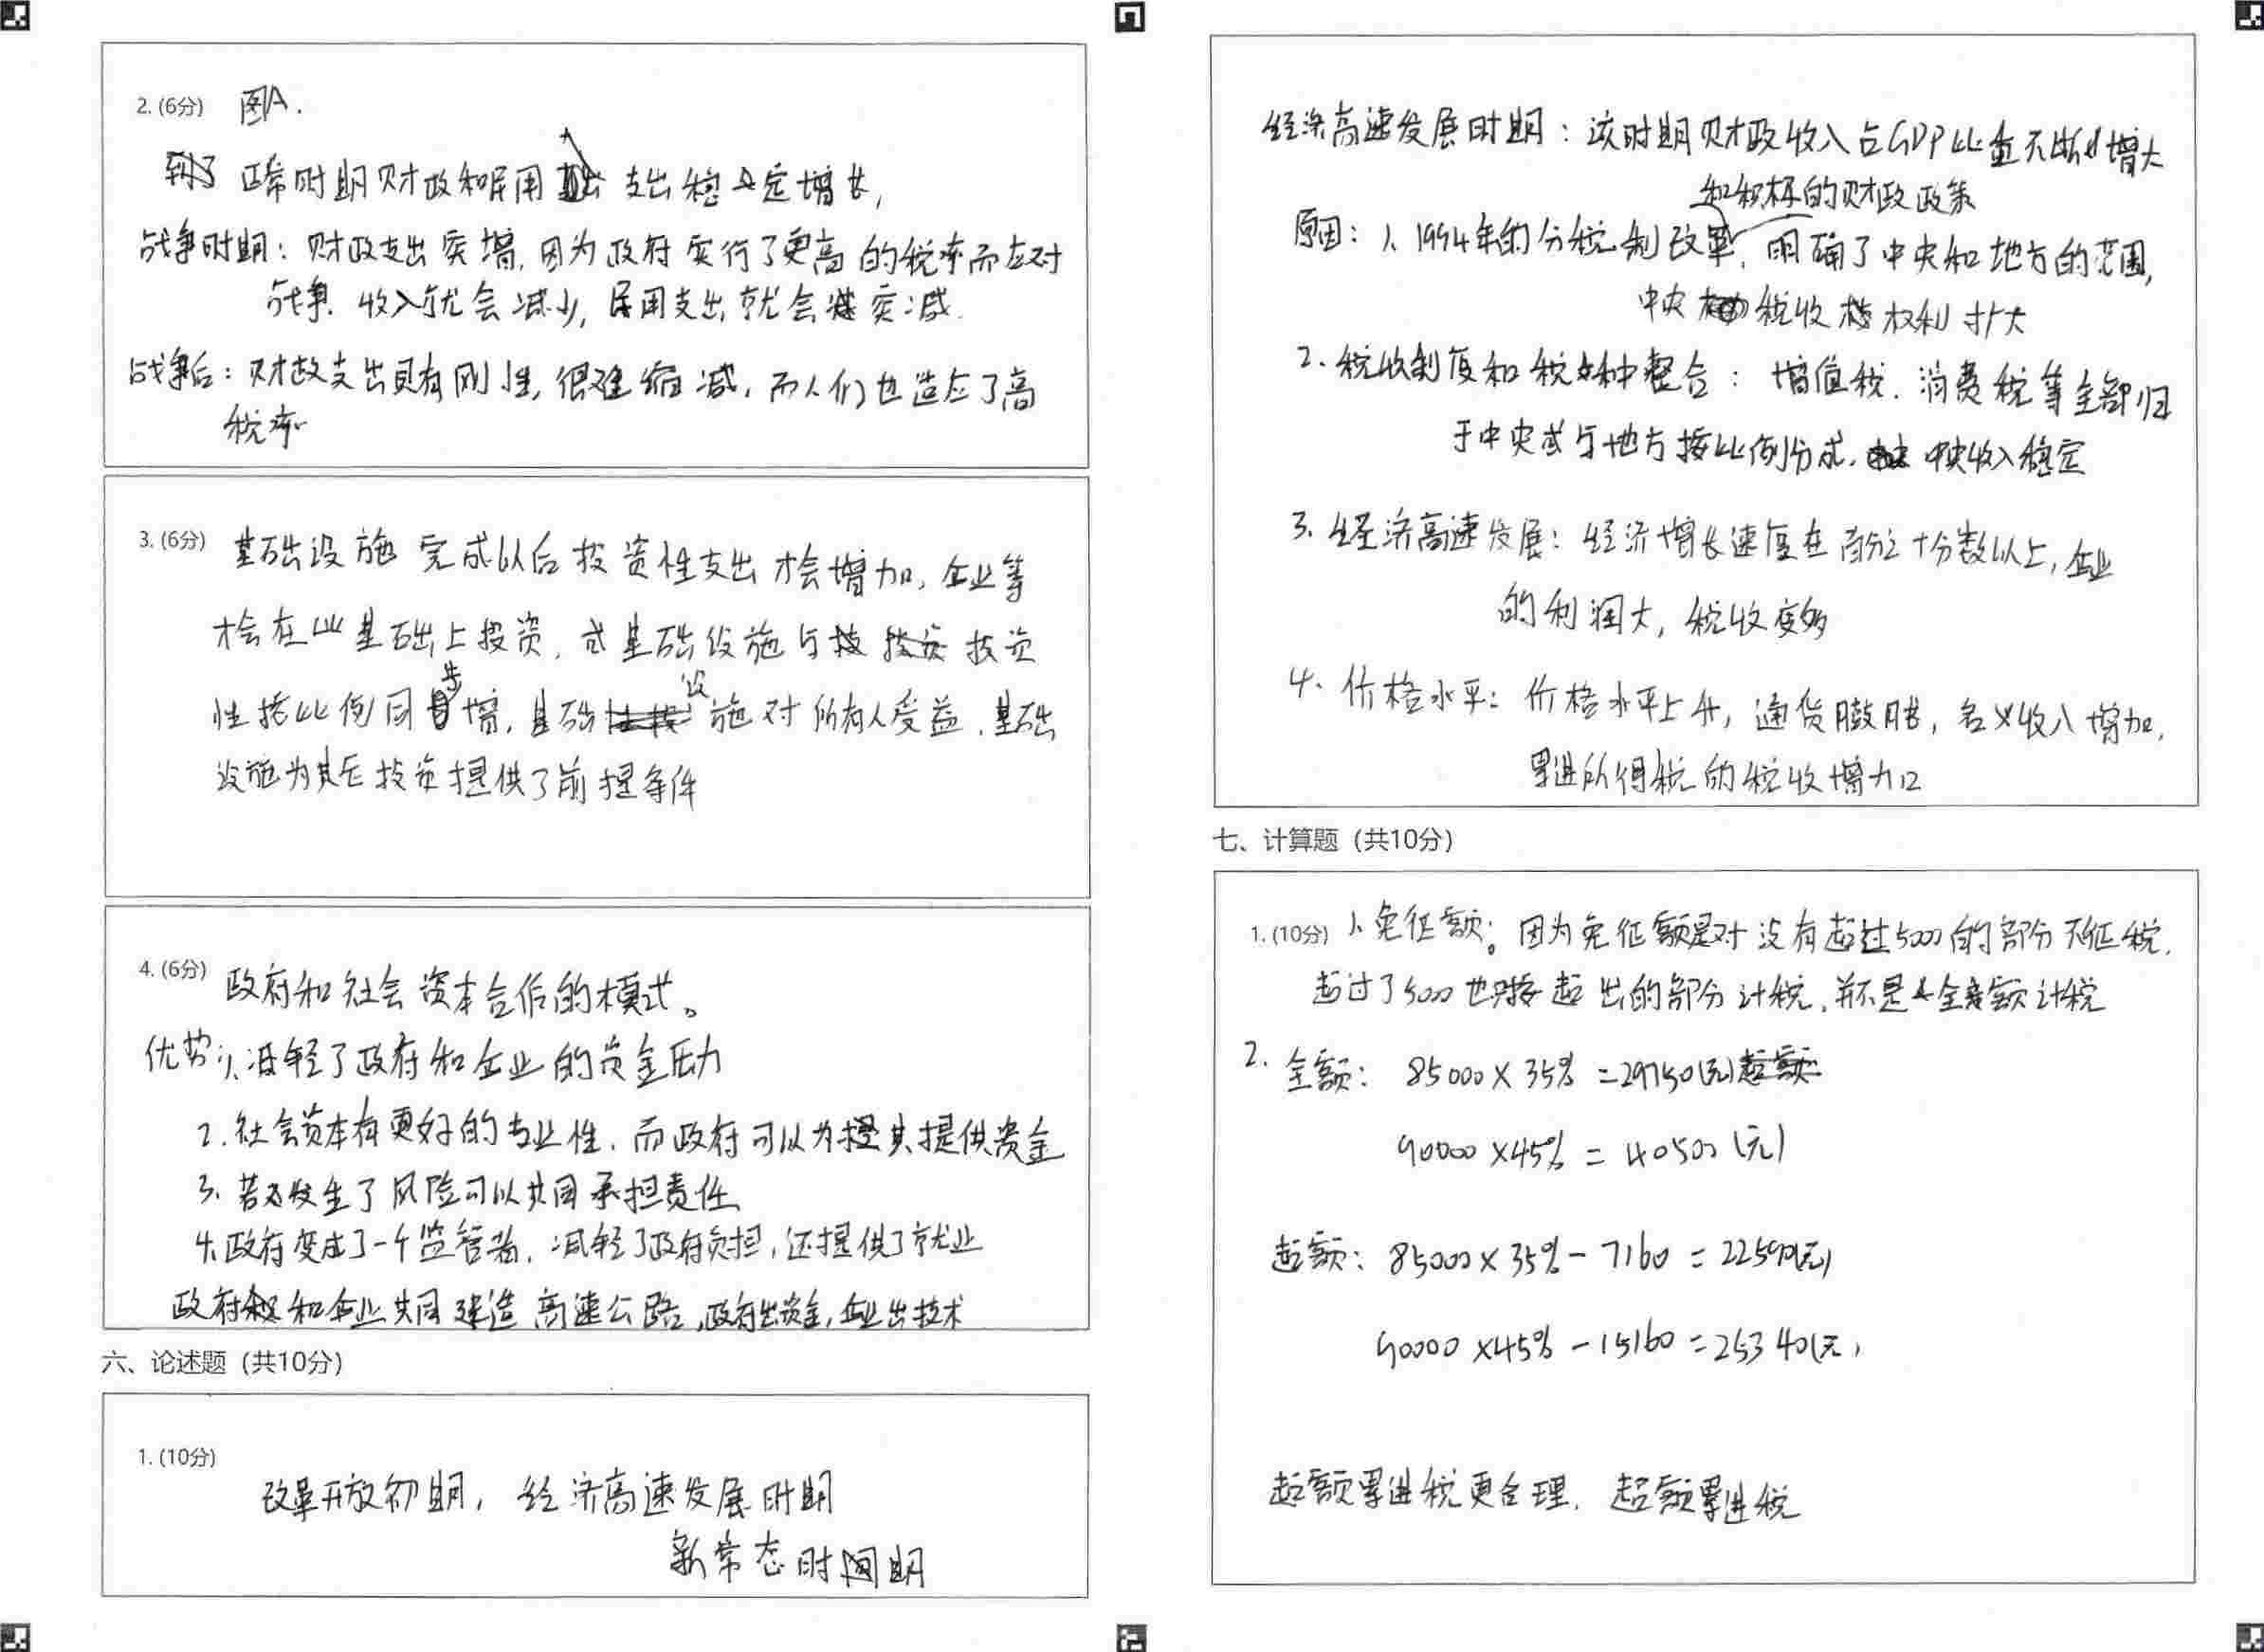 2. (6分) 图A.
正常时期财政和民用支出稳定增长,
战争时期: 财政支出突增, 因为政府实行了更高的税率而应对
战争. 收入就会减少, 民用支出就会突减.
战争后: 财政支出具有刚性, 很难缩减, 而人们也适应了高
税率
3. (6分) 基础设施完成以后投资性支出才会增加, 企业等
才会在此基础上投资, 或基础设施与投资
性按比例同步增, 基础设施对所有人受益, 基础
设施为其后投资提供了前提条件
4. (6分) 政府和社会资本合作的模式。
优势: 1、减轻了政府和企业的资金压力
2. 社会资本有更好的专业性, 而政府可以为其提供资金
3. 若发生了风险可以共同承担责任
4. 政府变成了一个监管者, 减轻了政府负担, 还提供了就业
政府和企业共同建造高速公路, 政府出资金, 企业出技术
六、论述题（共10分）
1. (10分)
改革开放初期, 经济高速发展时期
新常态时期
经济高速发展时期: 该时期财政收入占GDP比重不断增大
和积极的财政政策
原因: 1、1994年的分税制改革, 明确了中央和地方的范围,
中央税收权利扩大
2. 税收制度和税种整合: 增值税、消费税等全部归
于中央或与地方按比例分成, 中央收入稳定
3. 经济高速发展: 经济增长速度在百分之十分数以上, 企业
的利润大, 税收变多
4、价格水平: 价格水平上升, 通货膨胀, 名义收入增加,
累进所得税的税收增加
七、计算题（共10分）
1. (10分) 1、免征额。因为免征额是对没有超过5000的部分不征税,
超过了5000也只按超出的部分计税, 并不是全额计税
2. 全额: 85000×35%=29750(元)
90000×45%=40500(元)
超额: 85000×35%-7160=22590(元)
90000×45%-15160=25340(元)
超额累进税更合理, 超额累进税